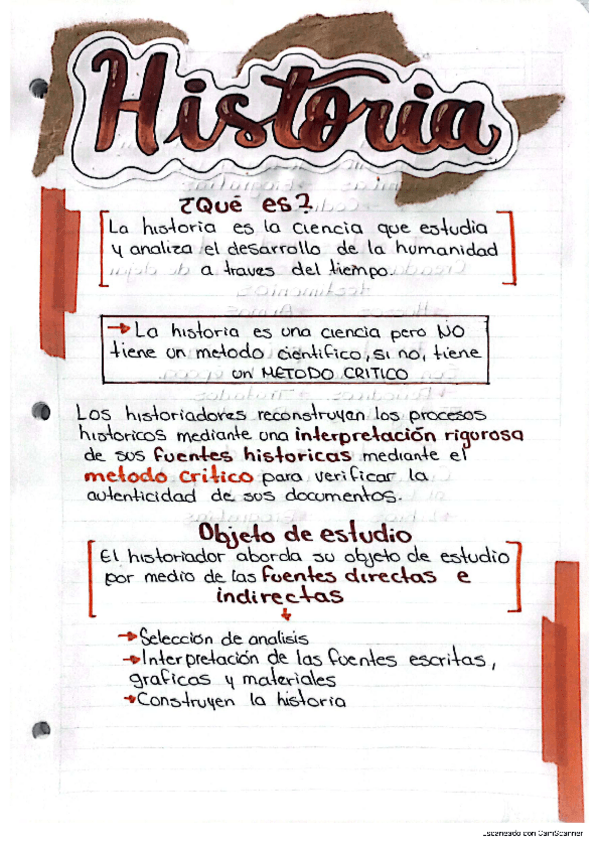 Historia
¿Qué es?
La historia es la ciencia que estudia
y analiza el desarrollo de la humanidad
a traves del tiempo.
→La historia es una ciencia pero NO
tiene un metodo cientifico, si no, tiene
un METODO CRITICO
Los historiadores reconstruyen los procesos
historicos mediante una interpretación rigorosa
de sus fuentes historicas mediante el
metodo critico para verificar la
autenticidad de sus documentos.
Objeto de estudio
El historiador aborda su objeto de estudio
por medio de las fuentes directas e
indirectas
→Selección de analisis
→Interpretación de las fuentes escritas,
graficas y materiales
→Construyen la historia
Escaneado con CamScanner